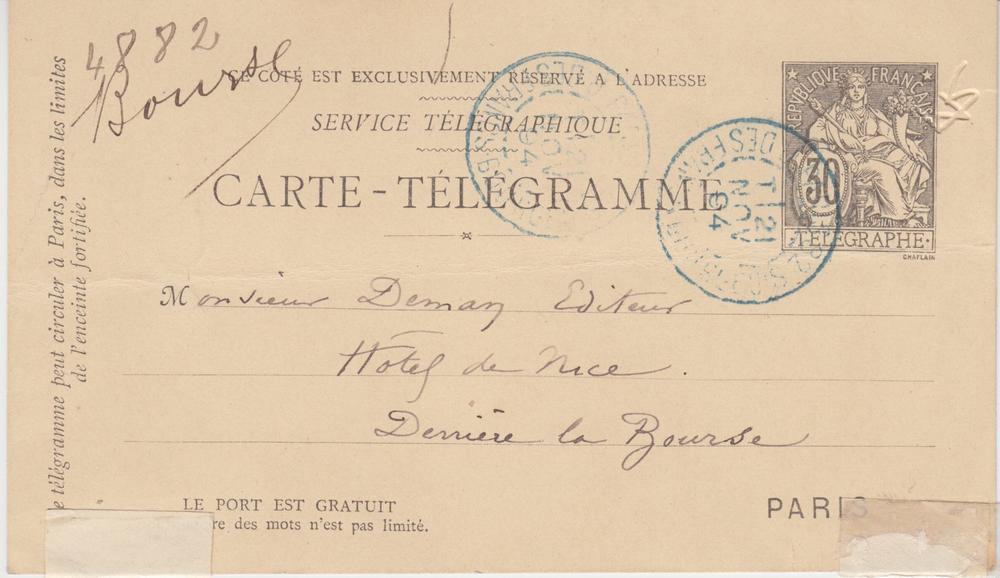 4882
Bourse
CE CÔTÉ EST EXCLUSIVEMENT RÉSERVÉ A L'ADRESSE
SERVICE TÉLÉGRAPHIQUE
CARTE-TÉLÉGRAMME
REPVBLIQVE FRANCAISE
30
TÉLÉGRAPHE
CHAPLAIN
21
NOV
94
21
NOV
94
Monsieur Deman Editeur
Hôtel de Nice.
Derrière la Bourse
LE PORT EST GRATUIT
re des mots n'est pas limité.
PARIS
e télégramme peut circuler à Paris, dans les limites
de l'enceinte fortifiée.